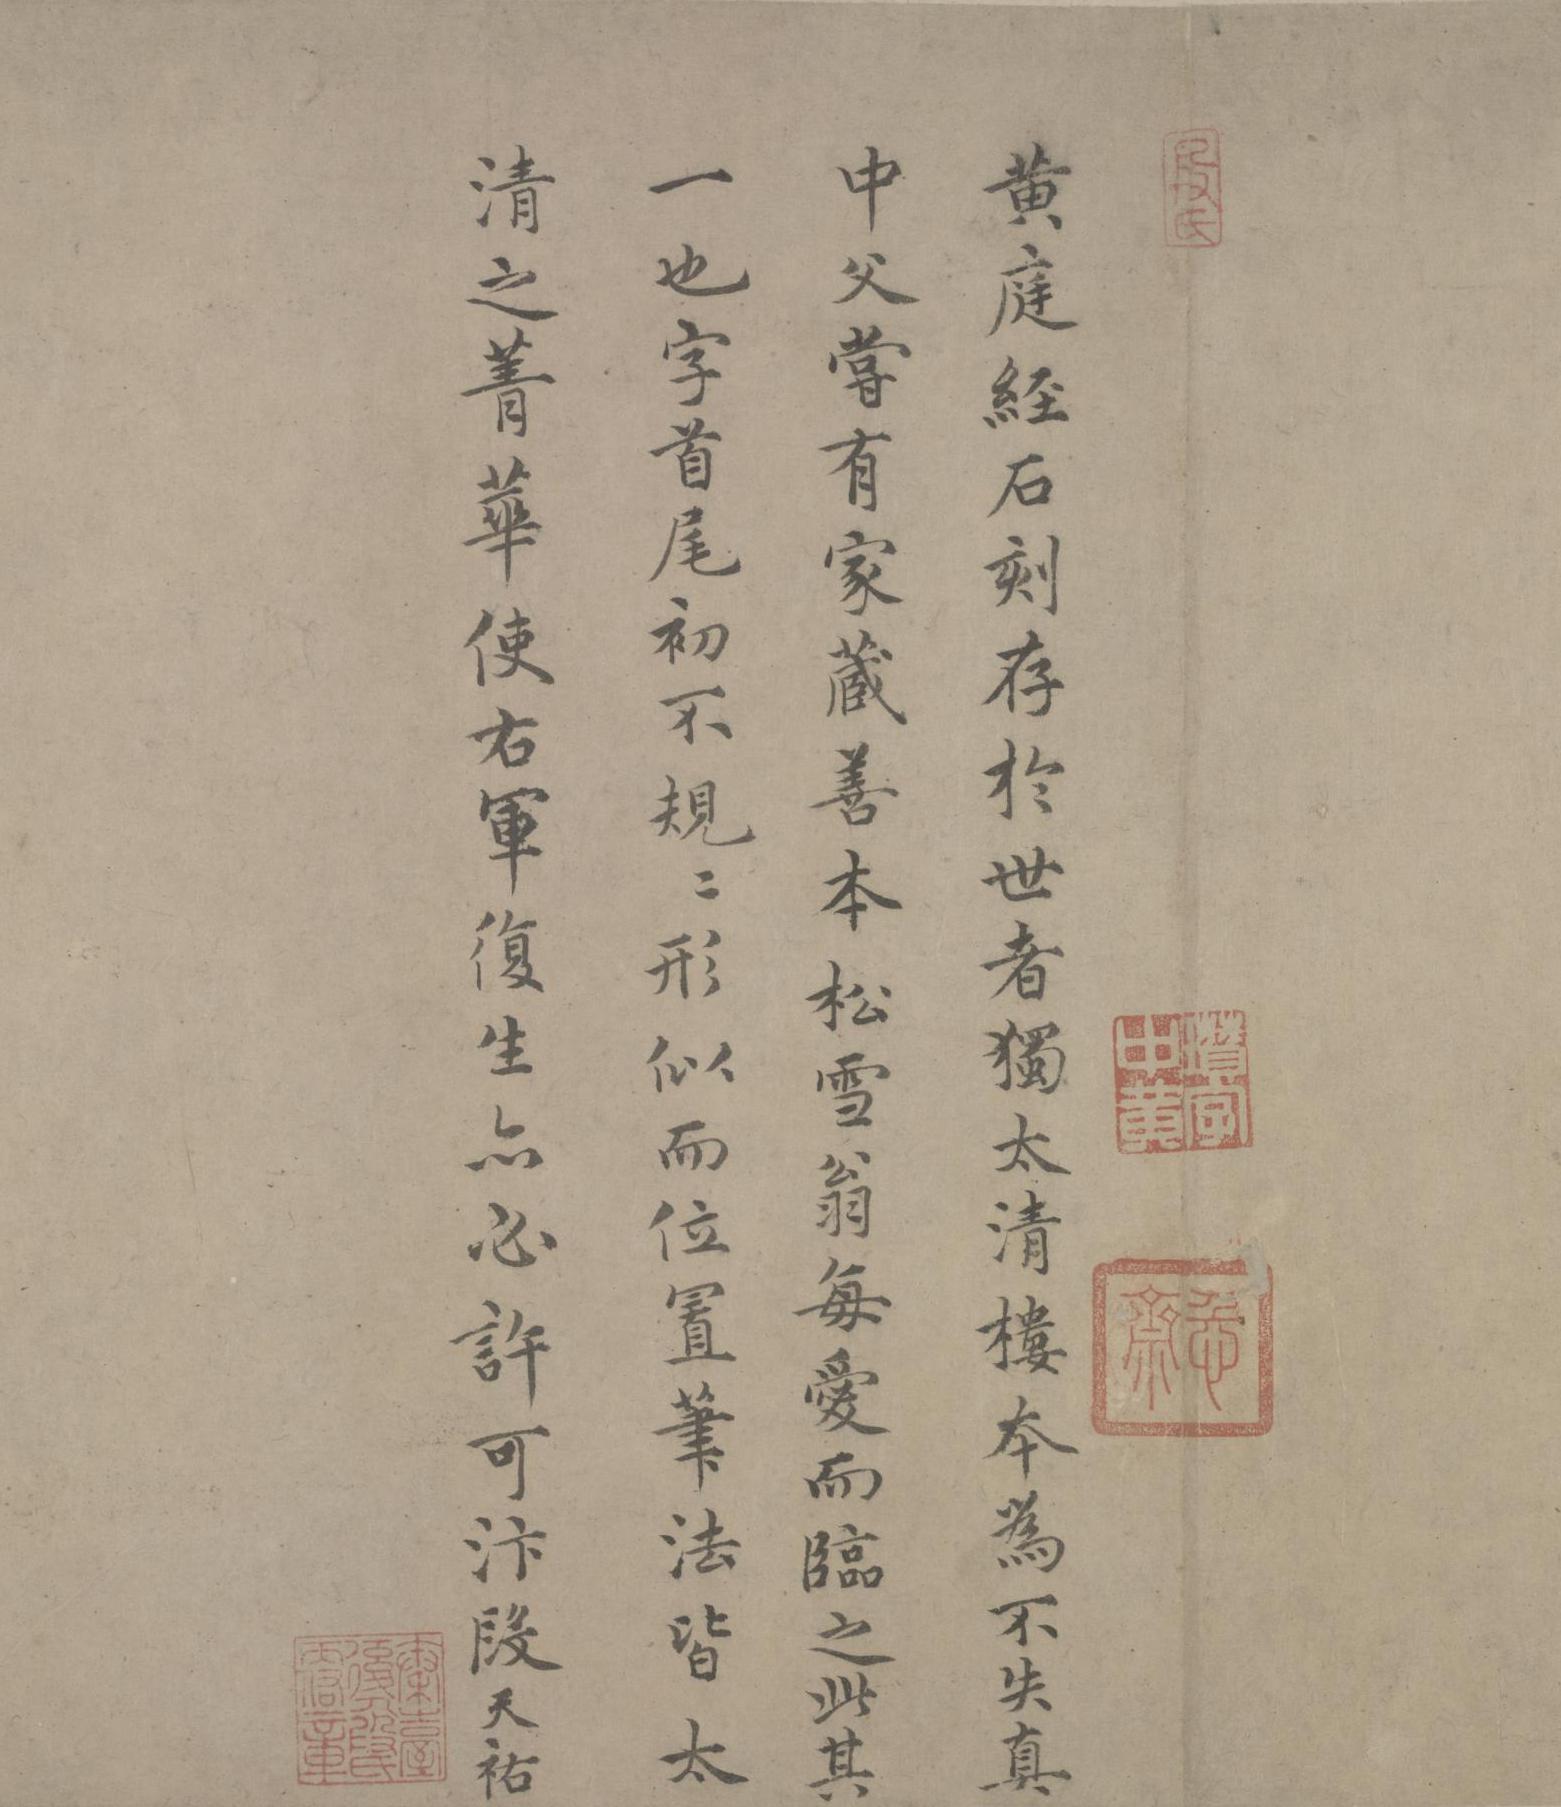 黄庭經石刻存於世者獨太清樓本為不失真
中父嘗有家藏善本松雪翁每愛而臨之此其
一也字首尾初不規〻形似而位置筆法皆太
清之菁華使右軍復生亦必許可汴段天祐
段氏